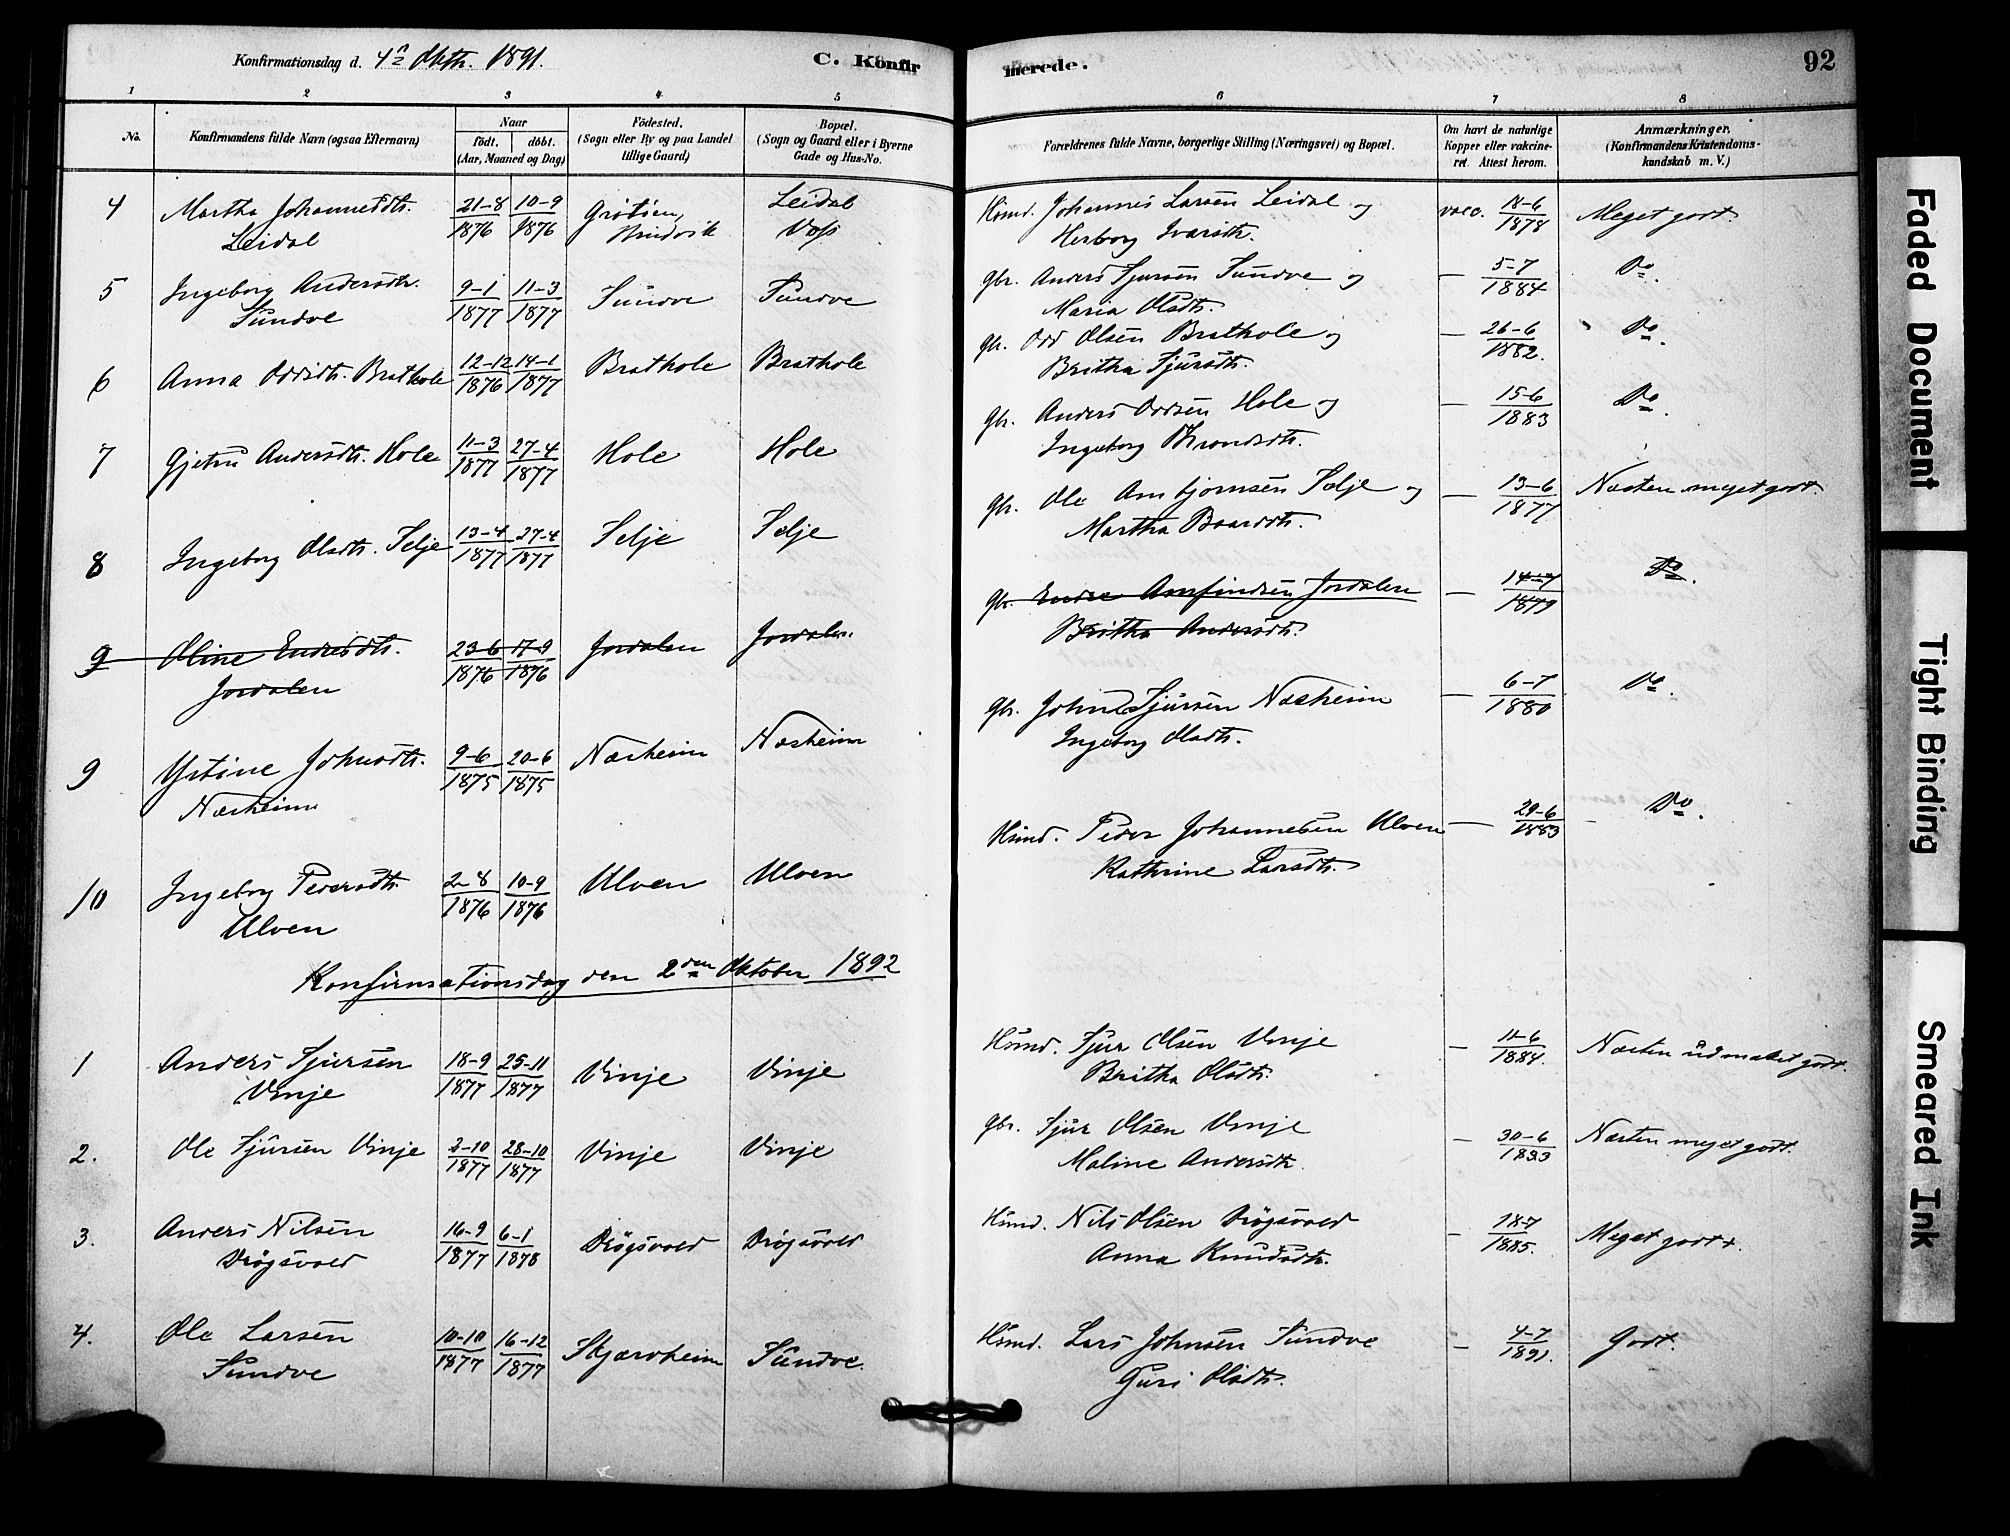 Konfirmationsdag d. 4n Oktb. 1891.
C. Konfirmerede.
92
1 2 3 4 5 6 7 8
No.
Konfirmandens fulde Navn (ogsaa Efternavn)
Naar
født. døbt.
(Aar, Maaned og Dag)
Fødested.
(Sogn eller By og paa Landet
tillige Gaard)
Bopæl.
(Sogn og Gaard eller i Byerne
Gade og Hus-No.
Forældrenes fulde Navne, borgerlige Stilling (Næringsvei) og Bopæl.
Om havt de naturlige
Kopper eller vakcine-
ret. Attest herom.
Anmærkninger.
(Konfirmandens Kristendoms-
kundskab m. V.)
4 Martha Johannesdtr. 21-8 10-9 Leidal Husmd. Johannes Larsen Leidal og vacc. 18-6 Meget godt.
Leidal 1876 1876 Brudvik Voss Herborg Ivarsdtr. 1878
5 Ingeborg Andersdtr. 9-1 11-3 Sundve Sundve Gbr. Anders Sjursen Sundve og — 5-7 Do.
Sundve 1877 1877 Maria Olsdtr. 1884
6 Anna Oddsdtr. Brathole 12-12 14-1 Brathole Brathole Gbr. Odd Olsen Brathole og — 26-6 Do.
1876 1877 Britha Sjursdtr. 1882.
7 Gjetru Andersdtr. Hole 11-3 27-4 Hole Hole Gbr. Anders Oddsen Hole og — 15-6 Do.
1877 1877 Ingeborg Throndsdtr. 1883
8 Ingeborg Olsdtr. Selje 13-4 27-4 Selje Selje Gbr. Ole Arnbjørnsen Selje og — 13-6 Næsten meget godt.
1877 1877 Martha Baardsdtr. 1877
9 Oline Endresdtr. 23-6 17-9 Jordalen Jordalen Gbr. Endre Arnfindsen Jordalen — 14-7 Do.
Jordalen 1876 1876 Britha Andersdtr. 1879
9 Ystine Johnsdtr. 9-6 20-6 Næsheim Næsheim Gbr. John Sjursen Næsheim — 6-7 Do.
Næsheim 1875 1875 Ingeborg Olsdtr. 1880
10 Ingeborg Pedersdtr. 2-8 10-9 Ulven Ulven Husmd. Peder Johannesen Ulven — 29-6 Do.
Ulven 1876 1876 Kathrine Larsdtr. 1883
Konfirmationsdag den 2den Oktober 1892
1 Anders Sjursen 18-9 25-11 Vinje Vinje Husmd. Sjur Olsen Vinje — 11-6 Næsten udmærket godt.
Vinje 1877 1877 Britha Olsdtr. 1884.
2. Ole Sjursen Vinje 2-10 28-10 Vinje Vinje Gbr. Sjur Olsen Vinje — 30-6 Næsten meget godt.
1877 1877 Maline Andersdtr. 1883
3. Anders Nilsen 16-9 6-1 Drøgsvold Drøgsvold Husmd. Nils Olsen Drøgsvold — 18-7 Meget godt+.
Drøgsvold 1877 1878 Anna Knudsdtr. 1885.
4. Ole Larsen 10-10 16-12 Skjærvheim Sundve. Husmd. Lars Johnsen Sundve — 4-7 Godt.
Sundve 1877 1877 Guri Olsdtr. 1891.
Faded Document
Tight Binding
Smeared Ink